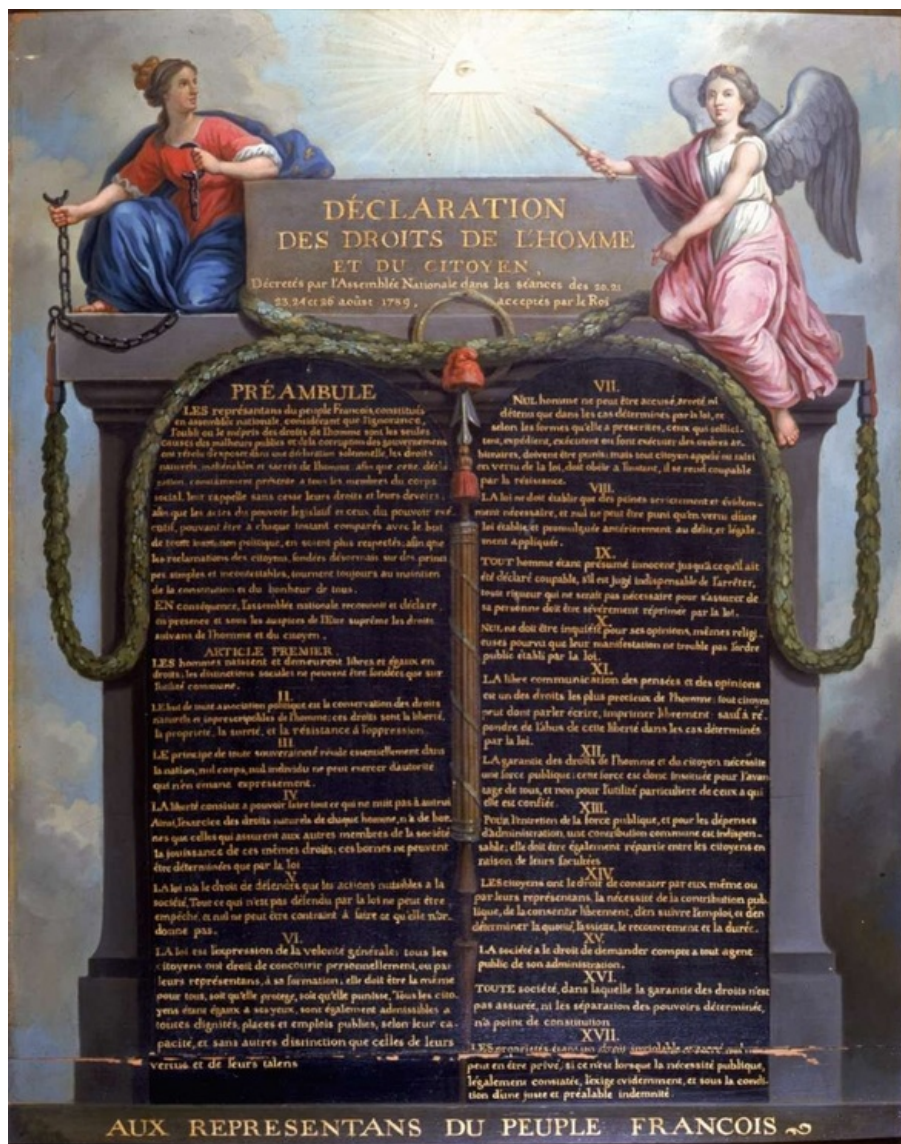 DÉCLARATION
DES DROITS DE L'HOMME
ET DU CITOYEN,
Décretés par l'Assemblée Nationale dans les séances des 20. 21
23. 24 et 26 août 1789, acceptés par le Roi
PRÉAMBULE
LES représentans du peuple Francois, constitués
en assemblée nationale, considérant que l'ignorance,
l'oubli ou le mépris des droits de l'homme sont les seules
causes des malheurs publics et de la corruption des gouvernemens
ont résolu d'exposer dans une déclaration solemnelle, les droits
naturels, inaliénables et sacrés de l'homme: afin que cette décla
ration, constamment présente a tous les membres du corps
social, leur rappelle sans cesse leurs droits et leurs devoirs,
afin que les actes du pouvoir législatif et ceux du pouvoir exé
cutif, pouvant être a chaque instant comparés avec le but
de toute institution politique, en soient plus respectés; afin que
les réclamations des citoyens, fondées désormais sur des princi
pes simples et incontestables, tournent toujours au maintien
de la constitution et du bonheur de tous.
EN conséquence, l'assemblée nationale reconnoit et déclare,
en présence et sous les auspices de l'Etre suprême les droits
suivans de l'homme et du citoyen.
ARTICLE PREMIER.
LES hommes naissent et demeurent libres et égaux en
droits; les distinctions sociales ne peuvent être fondées que sur
l'utilité commune.
II.
LE but de toute association politique est la conservation des droits
naturels et imprescriptibles de l'homme; ces droits sont la liberté,
la propriété, la sureté, et la résistance à l'oppression.
III.
LE principe de toute souveraineté réside essentiellement dans
la nation, nul corps, nul individu ne peut exercer d'autorité
qui n'en émane expressement.
IV.
LA liberté consiste a pouvoir faire tout ce qui ne nuit pas à autrui
Ainsi, l'exercice des droits naturels de chaque homme, n'a de bor-
nes que celles qui assurent aux autres membres de la société
la jouissance de ces mêmes droits; ces bornes ne peuvent
être déterminées que par la loi
V.
LA loi n'a le droit de défendre que les actions nuisibles a la
société. Tout ce qui n'est pas défendu par la loi ne peut être
empêché, et nul ne peut être contraint à faire ce qu'elle n'or-
donne pas.
VI.
LA loi est l'expression de la volonté générale; tous les
citoyens ont droit de concourir personnellement, ou par
leurs représentans, à sa formation; elle doit être la même
pour tous, soit qu'elle protege, soit qu'elle punisse. Tous les cito-
yens étant égaux à ses yeux, sont également admissibles a
toutes dignités, places et emplois publics, selon leur ca-
pacité, et sans autres distinction que celles de leurs
vertus et de leurs talens
VII.
NUL homme ne peut être accusé, arreté, ni
détenu que dans les cas déterminés par la loi, et
selon les formes qu'elle a prescrites, ceux qui sollici-
tent, expédient, exécutent ou font exécuter des ordres ar-
bitraires, doivent être punis; mais tout citoyen appelé ou saisi
en vertu de la loi, doit obéir a l'instant, il se rend coupable
par la résistance.
VIII.
LA loi ne doit établir que des peines strictement et évidem-
ment nécessaire, et nul ne peut être puni qu'en vertu d'une
loi établie et promulguée antérierement au délit, et légale-
ment appliquée.
IX.
TOUT homme étant présumé innocent jusqu'a ce qu'il ait
été déclaré coupable, s'il est jugé indispensable de l'arrêter,
toute rigueur qui ne serait pas nécessaire pour s'assurer de
sa personne doit être sévèrement réprimée par la loi.
X.
NUL ne doit être inquiété pour ses opinions, mêmes religi-
euses pourvû que leur manifestation ne trouble pas l'ordre
public établi par la loi.
XI.
LA libre communication des pensées et des opinions
est un des droits les plus precieux de l'homme; tout citoyen
peut donc parler écrire, imprimer librement: sauf à ré-
pondre de l'abus de cette liberté dans les cas déterminés
par la loi.
XII.
LA garantie des droits de l'homme et du citoyen nécessite
une force publique; cette force est donc instituée pour l'avan-
tage de tous, et non pour l'utilité particuliere de ceux a qui
elle est confiée.
XIII.
POUR l'entretien de la force publique, et pour les dépenses
d'administration, une contribution commune est indispen-
sable; elle doit être également répartie entre les citoyens en
raison de leurs facultées
XIV.
LES citoyens ont le droit de constater par eux même ou
par leurs représentans, la nécessité de la contribution pub-
lique, de la consentir librement, d'en suivre l'emploi, et d'en
déterminer la quotité, l'assiette, le recouvrement et la durée.
XV.
LA société a le droit de demander compte a tout agent
public de son administration.
XVI.
TOUTE société, dans laquelle la garantie des droits n'est
pas assurée, ni les séparation des pouvoirs déterminée,
n'a point de constitution
XVII.
LES propriétés étant un droit inviolable et sacré, nul ne
peut en être privé, si ce n'est lorsque la nécessité publique,
légalement constatée, l'exige evidemment, et sous la condi-
tion d'une juste et préalable indemnité.
AUX REPRESENTANS DU PEUPLE FRANCOIS